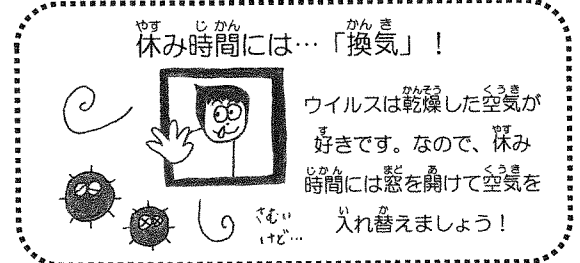 休み時間には…「換気」！
ウイルスは乾燥した空気が
好きです。なので、休み
時間には窓を開けて空気を
入れ替えましょう！
さむい
けど…